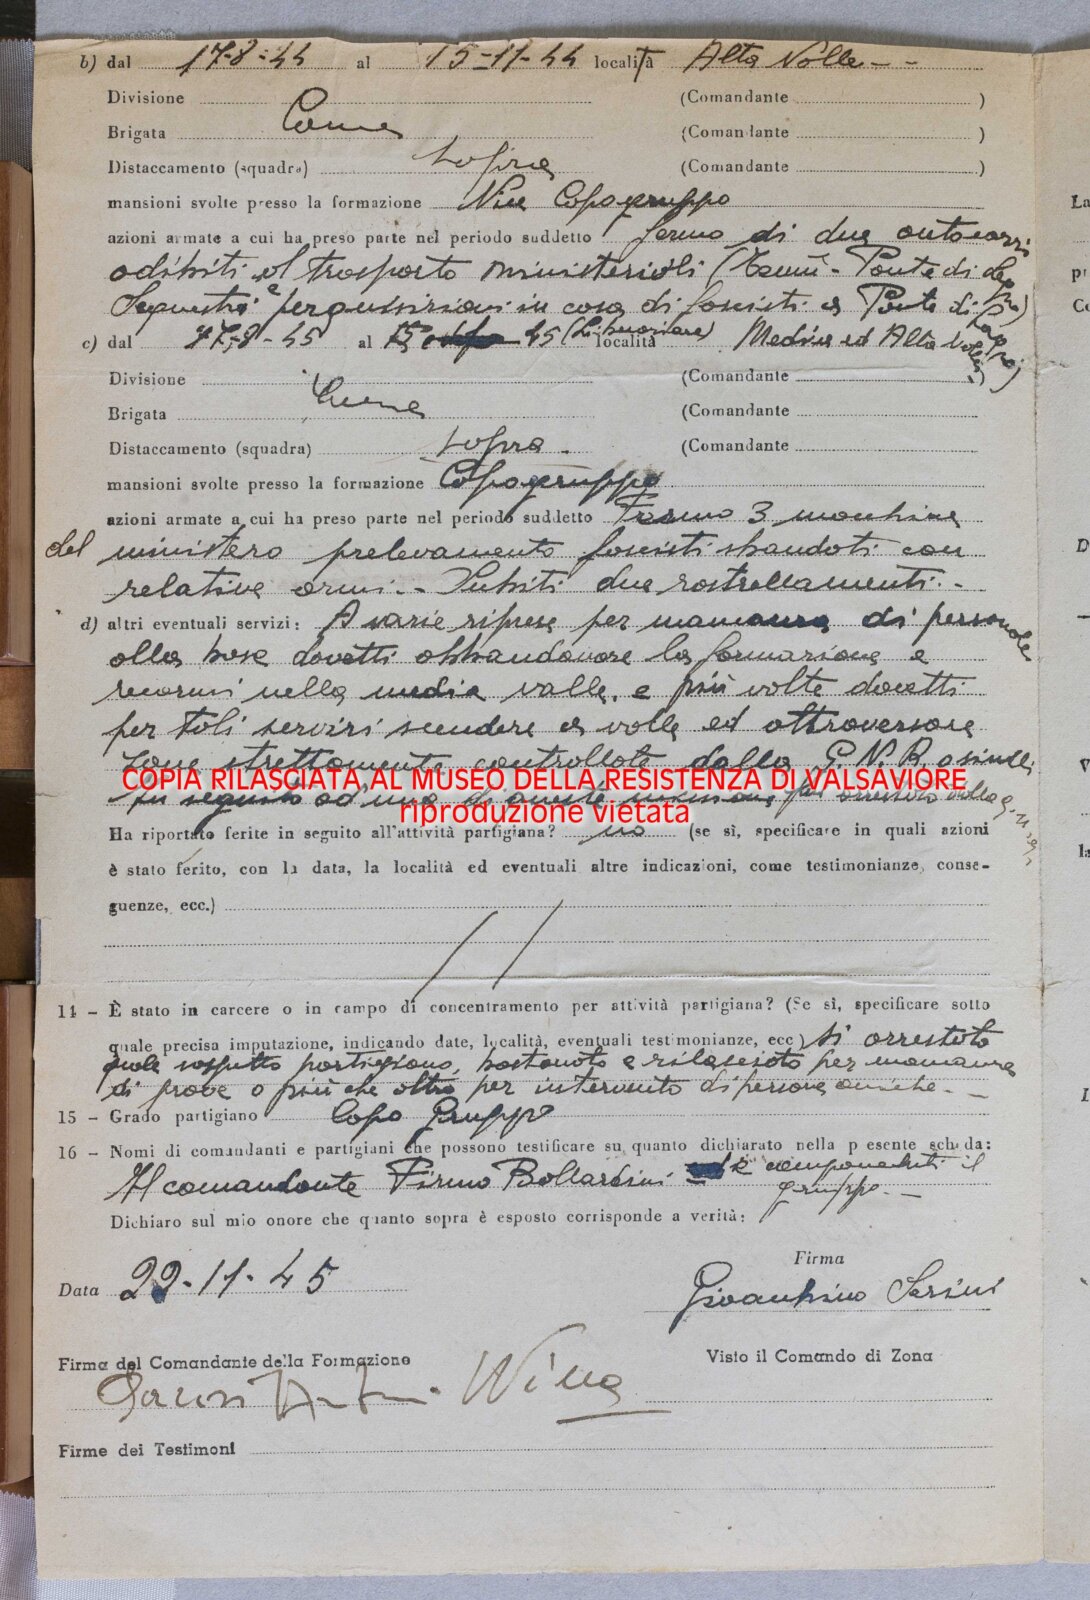 b) dal 17-8-44 al 15-11-44 località Alta Valle - -
Divisione (Comandante )
Brigata Come (Comandante )
Distaccamento (squadra) sopra (Comandante )
mansioni svolte presso la formazione Vice Capogruppo
azioni armate a cui ha preso parte nel periodo suddetto fermo di due autocarri
adibiti al trasporto ministeriali (Temù - Ponte di Legno)
Sequestri e perquisizioni in casa di fascisti a Ponte di
c) dal 17-8-45 al 45 (Liberazione) località Media ed Alta Valle
Divisione (Comandante )
Brigata Come (Comandante
Distaccamento (squadra) sopra - (Comandante
mansioni svolte presso la formazione Capogruppo
azioni armate a cui ha preso parte nel periodo suddetto Fermo 3 macchine
del ministero prelevamento fascisti sbandati con
relative armi.- Subiti due rastrellamenti.-
d) altri eventuali servizi: A varie riprese per mancanza di personale
alla base dovetti abbandonare la formazione e
recarmi nella media valle, e più volte dovetti
per tali servizi scendere a valle ed attraversare
zone strettamente controllate dalla G.N.R.
COPIA RILASCIATA AL MUSEO DELLA RESISTENZA DI VALSAVIORE
In seguito ad una di queste missioni fui arrestato dalla G.N.R.
riproduzione vietata
Ha riportato ferite in seguito all'attività partigiana? no (se sì, specificare in quali azioni
è stato ferito, con la data, la località ed eventuali altre indicazioni, come testimonianze, conse-
guenze, ecc.)
14 - È stato in carcere o in campo di concentramento per attività partigiana? (Se sì, specificare sotto
quale precisa imputazione, indicando date, località, eventuali testimonianze, ecc) Si arrestato
quale sospetto partigiano, bastonato e rilasciato per mancanza
di prove o più che altro per intervento di persone amiche.-
15 - Grado partigiano Capo Gruppo
16 - Nomi di comandanti e partigiani che possono testificare su quanto dichiarato nella presente scheda:
Il comandante Firmo Ballardini e componenti il
gruppo.-
Dichiaro sul mio onore che quanto sopra è esposto corrisponde a verità:
Firma
Data 22-11-45 Gioanchino Serini
Firma del Comandante della Formazione Visto il Comando di Zona
Firme dei Testimoni